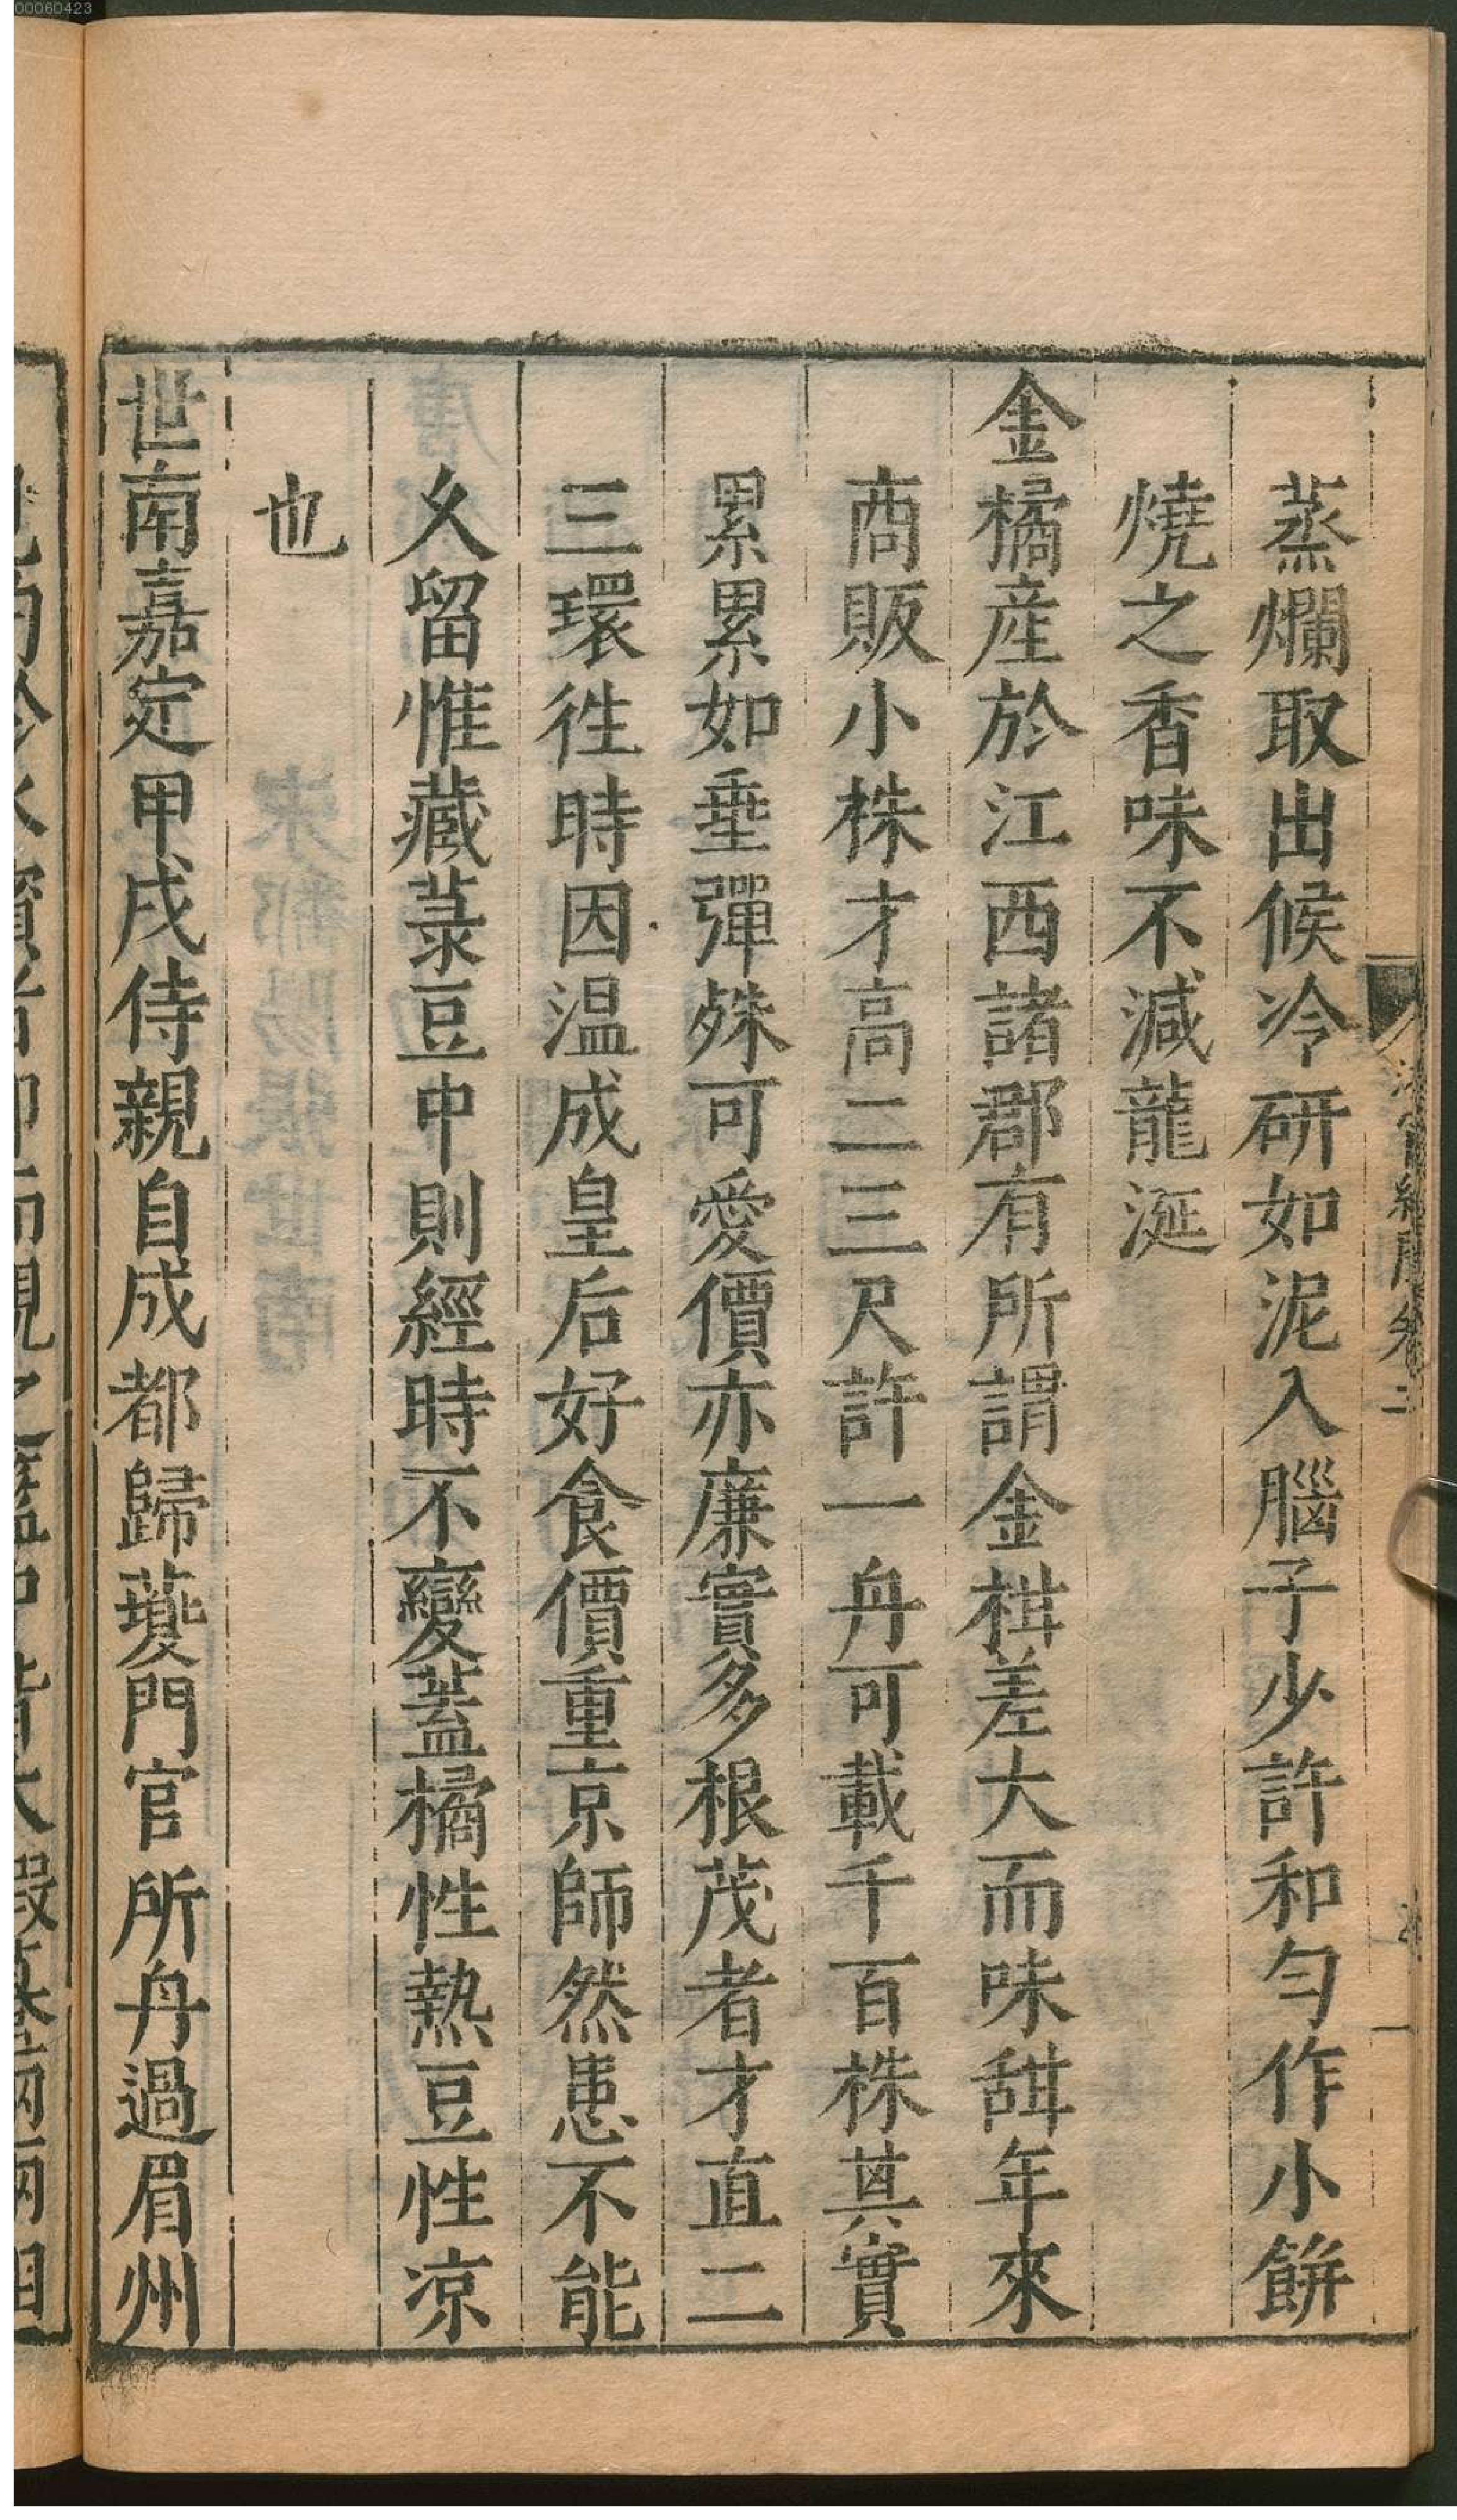 00060423
蒸爛取出候冷研如泥入腦子少許和匀作小餅
燒之香味不減龍涎
金橘產於江西諸郡有所謂金柑差大而味甜年來
商販小株才高二三尺許一舟可載千百株其實
累累如垂彈殊可愛價亦廉實多根茂者才直二
三環徃時因温成皇后好食價重京師然患不能
久留惟藏菉豆中則經時不變葢橘性熱豆性凉
也
世南嘉定甲戌侍親自成都歸夔門官所舟過眉州